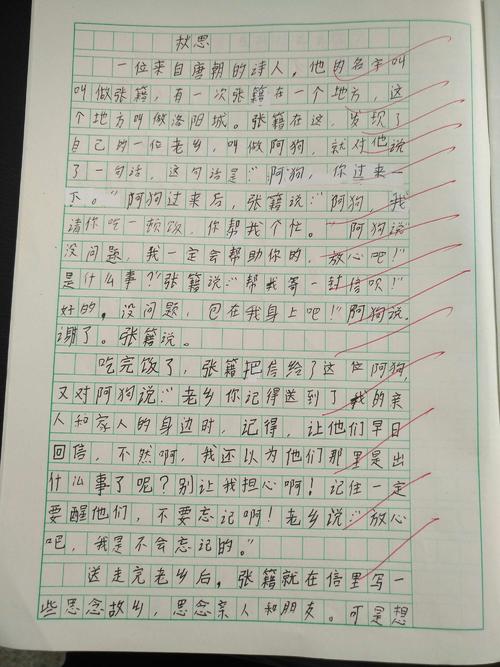 秋思
一位来自唐朝的诗人，他的名字叫
叫做张籍，有一次张籍在一个地方，这
个地方叫做洛阳城。张籍在这，发现了
自己的一位老乡，叫做阿狗，就对他说
了一句话，这句话是：“阿狗，你过来一
下。”阿狗过来后，张籍说：“阿狗，我
请你吃一顿饭，你帮我个忙。”“阿狗说”
没问题，我一定会帮助你的，放心吧！”
是什么事？”张籍说：“帮我寄一封信呗！”
好的，没问题，包在我身上吧！”阿狗说。
谢了。张籍说。
吃完饭了，张籍把信给了这位阿狗，
又对阿狗说：“老乡你记得送到了我的亲
人和家人的身边时，记得，让他们早日
回信，不然啊，我还以为他们那里是出
什么事了呢？别让我担心啊！记住一定
要醒他们，不要忘记啊！老乡说：“放心
吧，我是不会忘记的。”
送走完老乡后，张籍就在信里写一
些思念故乡，思念亲人和朋友。可是想